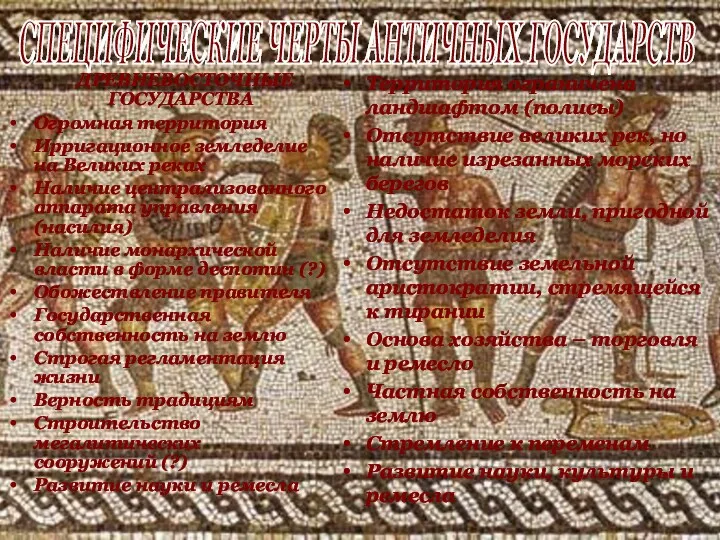 СПЕЦИФИЧЕСКИЕ ЧЕРТЫ АНТИЧНЫХ ГОСУДАРСТВ
ДРЕВНЕВОСТОЧНЫЕ
ГОСУДАРСТВА
• Огромная территория
• Ирригационное земледелие
на Великих реках
• Наличие централизованного
аппарата управления
(насилия)
• Наличие монархической
власти в форме деспотии (?)
• Обожествление правителя
• Государственная
собственность на землю
• Строгая регламентация
жизни
• Верность традициям
• Строительство
мегалитических
сооружений (?)
• Развитие науки и ремесла
• Территория ограничена
ландшафтом (полисы)
• Отсутствие великих рек, но
наличие изрезанных морских
берегов
• Недостаток земли, пригодной
для земледелия
• Отсутствие земельной
аристократии, стремящейся
к тирании
• Основа хозяйства – торговля
и ремесло
• Частная собственность на
землю
• Стремление к переменам
• Развитие науки, культуры и
ремесла